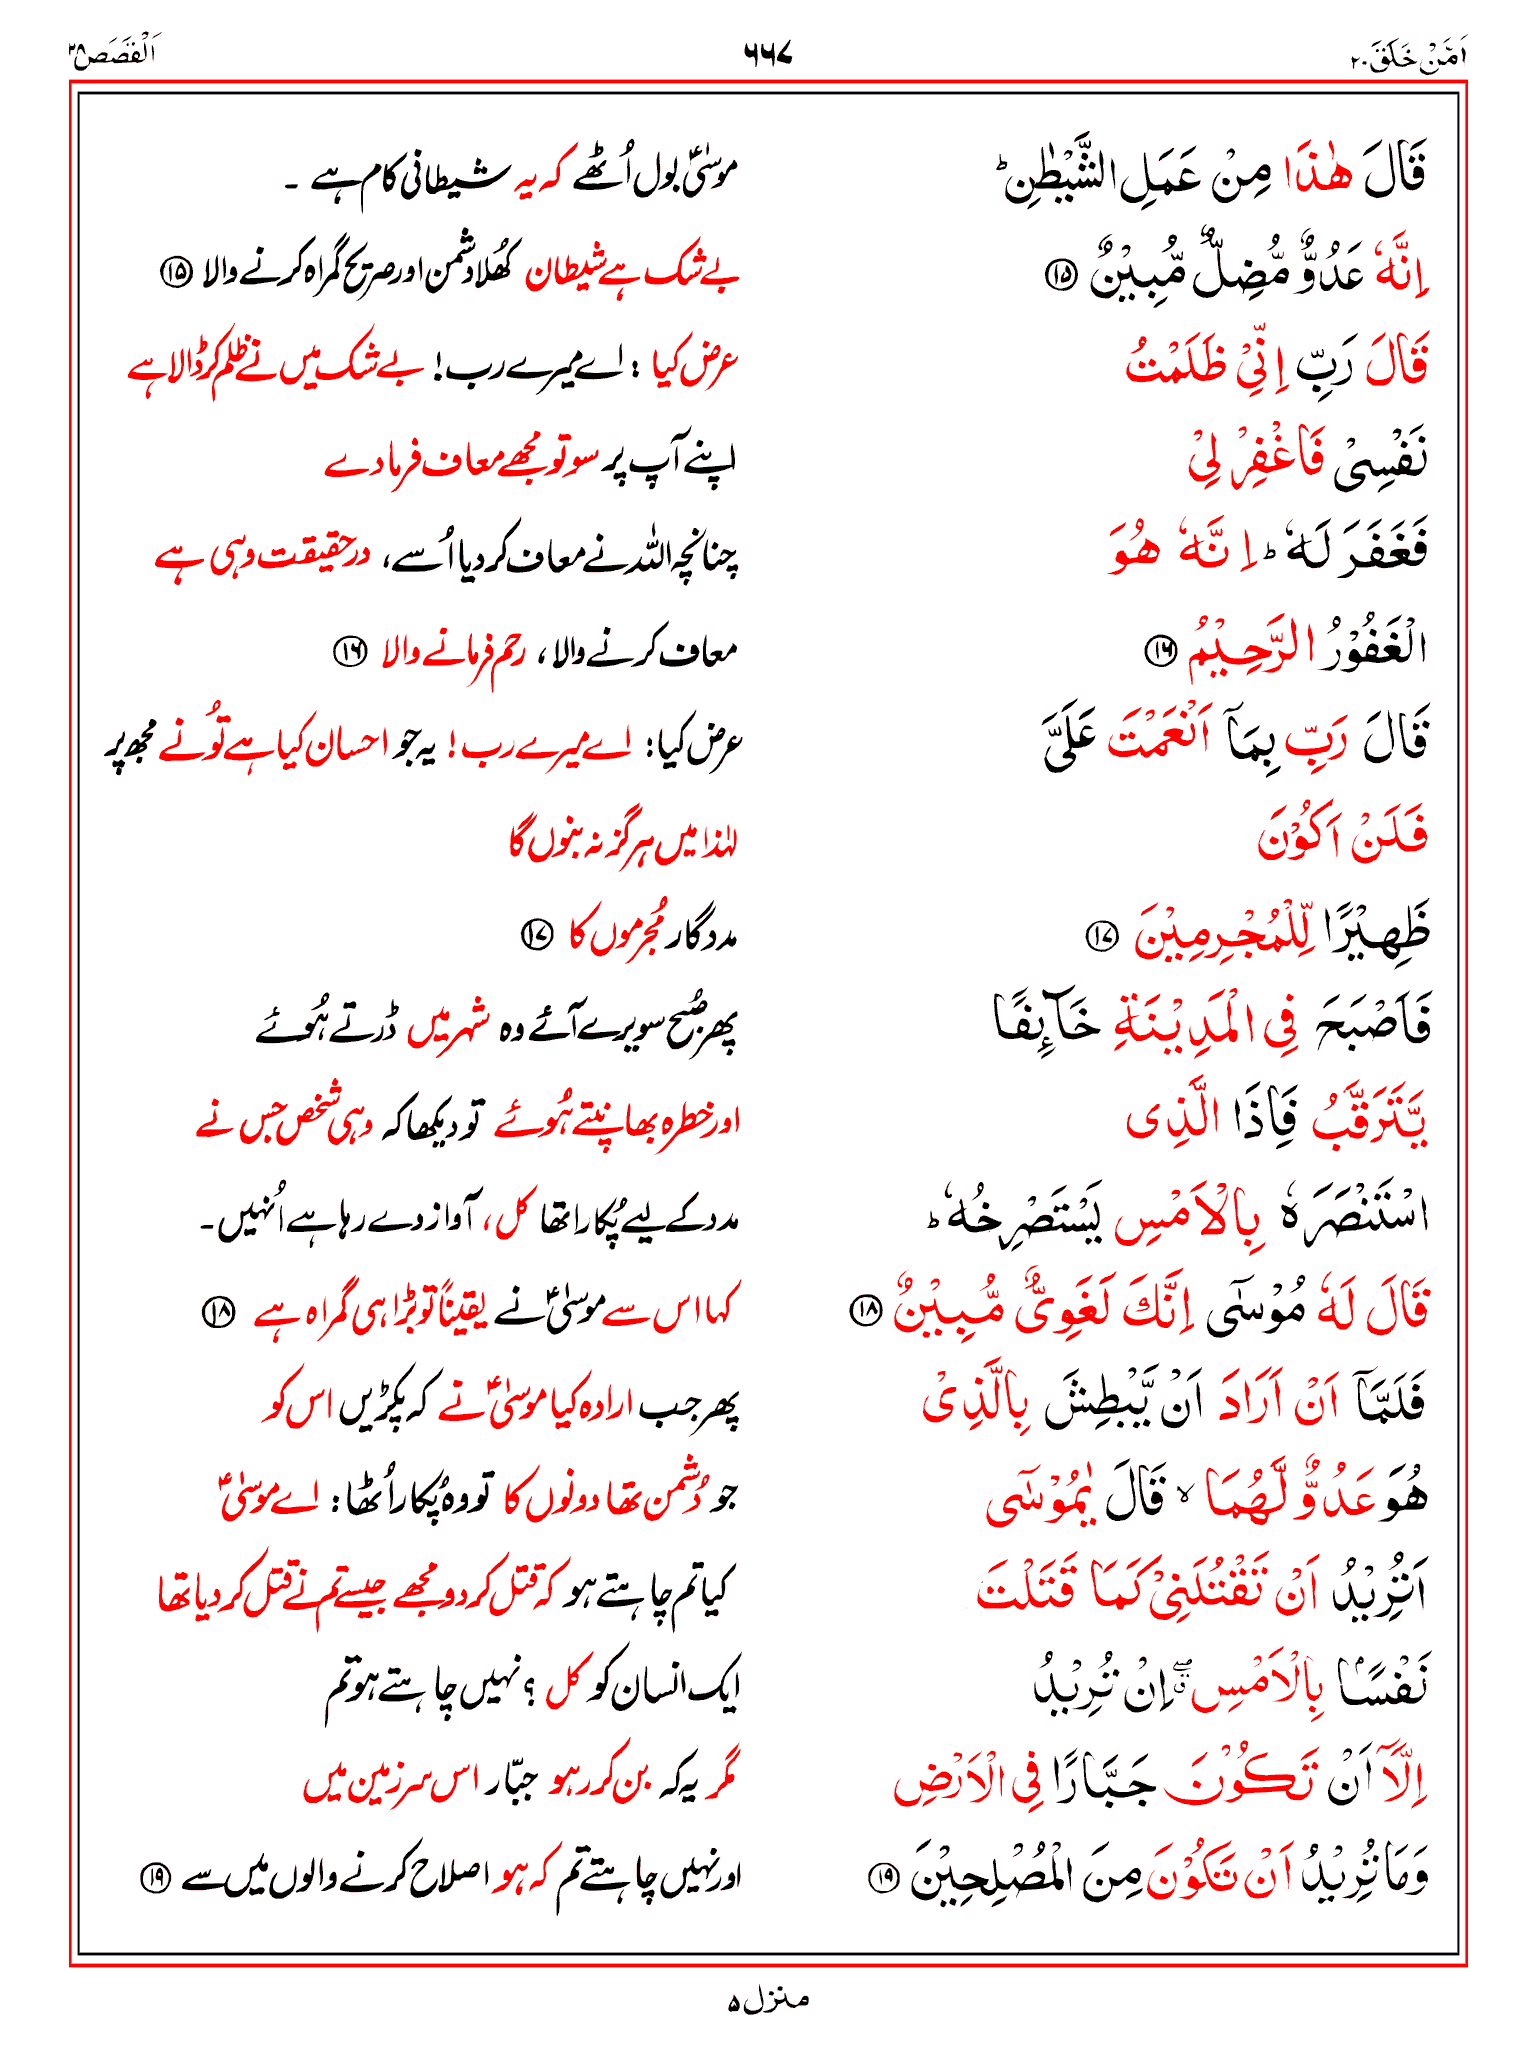 اَمَّنْ خَلَقَ ۲۰ ۶۶۷ اَلْقَصَص ۲۸
قَالَ هٰذَا مِنْ عَمَلِ الشَّيْطٰنِ ؕ موسٰیؑ بول اُٹھے کہ یہ شیطانی کام ہے ۔
اِنَّهٗ عَدُوٌّ مُّضِلٌّ مُّبِيْنٌ ⑮ بے شک ہے شیطان کھُلا دشمن اور صریح گمراہ کرنے والا ⑮
قَالَ رَبِّ اِنِّيْ ظَلَمْتُ عرض کیا : اے میرے رب! بے شک میں نے ظلم کر ڈالا ہے
نَفْسِيْ فَاغْفِرْ لِيْ اپنے آپ پر سو تو مجھے معاف فرما دے
فَغَفَرَ لَهٗ ؕ اِنَّهٗ هُوَ چنانچہ اللہ نے معاف کر دیا اُسے، درحقیقت وہی ہے
الْغَفُوْرُ الرَّحِيْمُ ⑯ معاف کرنے والا، رحم فرمانے والا ⑯
قَالَ رَبِّ بِمَاۤ اَنْعَمْتَ عَلَيَّ عرض کیا: اے میرے رب! یہ جو احسان کیا ہے تُو نے مجھ پر
فَلَنْ اَكُوْنَ لہٰذا میں ہرگز نہ بنوں گا
ظَهِيْرًا لِّلْمُجْرِمِيْنَ ⑰ مددگار مُجرموں کا ⑰
فَاَصْبَحَ فِي الْمَدِيْنَةِ خَآئِفًا پھر صُبح سویرے آئے وہ شہر میں ڈرتے ہُوئے
يَّتَرَقَّبُ فَاِذَا الَّذِى اور خطرہ بھانپتے ہُوئے تو دیکھا کہ وہی شخص جس نے
اسْتَنْصَرَهٗ بِالْاَمْسِ يَسْتَصْرِخُهٗ ؕ مدد کے لیے پُکارا تھا کل، آواز دے رہا ہے اُنہیں۔
قَالَ لَهٗ مُوْسٰۤى اِنَّكَ لَغَوِيٌّ مُّبِيْنٌ ⑱ کہا اس سے موسٰیؑ نے یقیناً تو بڑا ہی گمراہ ہے ⑱
فَلَمَّاۤ اَنْ اَرَادَ اَنْ يَّبْطِشَ بِالَّذِيْ پھر جب ارادہ کیا موسٰیؑ نے کہ پکڑیں اس کو
هُوَ عَدُوٌّ لَّهُمَا ۙ قَالَ يٰمُوْسٰۤى جو دُشمن تھا دونوں کا تو وہ پُکار اُٹھا: اے موسٰیؑ
اَتُرِيْدُ اَنْ تَقْتُلَنِيْ كَمَا قَتَلْتَ کیا تم چاہتے ہو کہ قتل کر دو مجھے جیسے تم نے قتل کر دیا تھا
نَفْسًۢا بِالْاَمْسِ ۖۗ اِنْ تُرِيْدُ ایک انسان کو کل ؟ نہیں چاہتے ہو تم
اِلَّاۤ اَنْ تَكُوْنَ جَبَّارًا فِي الْاَرْضِ مگر یہ کہ بن کر رہو جبّار اس سرزمین میں
وَمَا تُرِيْدُ اَنْ تَكُوْنَ مِنَ الْمُصْلِحِيْنَ ⑲ اور نہیں چاہتے تم کہ ہو اصلاح کرنے والوں میں سے ⑲
منزل ۵